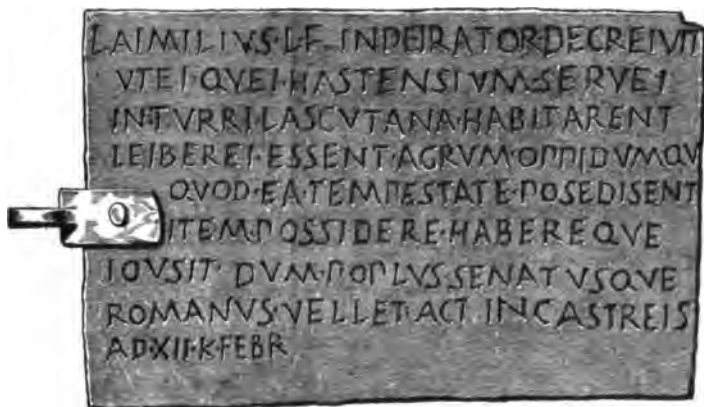 L·AIMILIVS·L·F·INPEIRATOR·DECREIVIT
VTEI·QVEI·HASTENSIVM·SERVEI
IN·TVRRI·LASCVTANA·HABITARENT
LEIBEREI·ESSENT·AGRVM·OPPIDVMQV
QVOD·EA·TEMPESTATE·POSEDISENT
ITEM·POSSIDERE·HABEREQVE
IOVSIT·DVM·POPLVS·SENATVSQVE
ROMANVS·VELLET·ACT·IN CASTREIS
AD·XII·K·FEBR